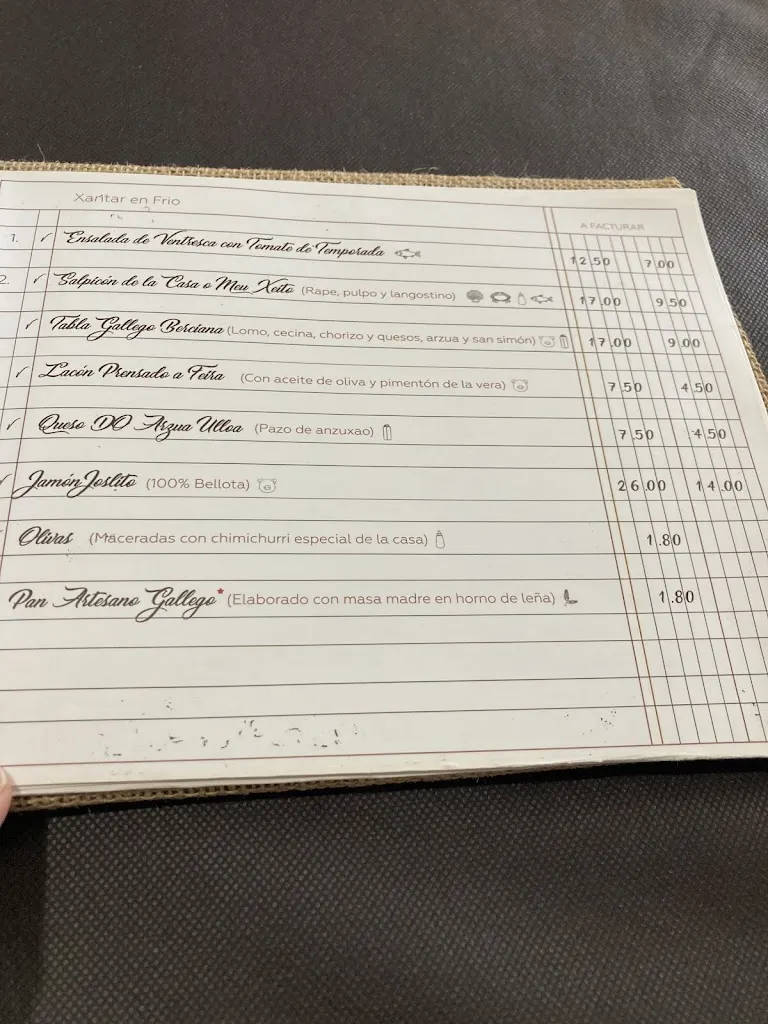 Xantar en Frio
A FACTURAR
1. ✓ Ensalada de Ventresca con Tomate de Temporada 12.50 7.00
2. ✓ Salpicón de la Casa o Meu Xeito (Rape, pulpo y langostino) 17.00 9.50
✓ Tabla Gallego Berciana (Lomo, cecina, chorizo y quesos, arzua y san simón) 17.00 9.00
✓ Lacón Prensado a Feira (Con aceite de oliva y pimentón de la vera) 7.50 4.50
✓ Queso DO Arzua Ulloa (Pazo de anzuxao) 7.50 4.50
✓ Jamón Joslito (100% Bellota) 26.00 14.00
Olivas (Maceradas con chimichurri especial de la casa) 1.80
Pan Artesano Gallego* (Elaborado con masa madre en horno de leña) 1.80